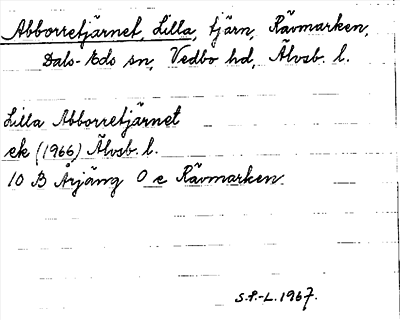 Abborretjärnet, Lilla, tjärn, Rävmarken,
Dals-Eds sn, Vedbo hd, Älvsb. l.
Lilla Abborretjärnet
ek (1966) Älvsb. l.
10 B Årjäng O e Rävmarken.
S.F.-L. 1967.